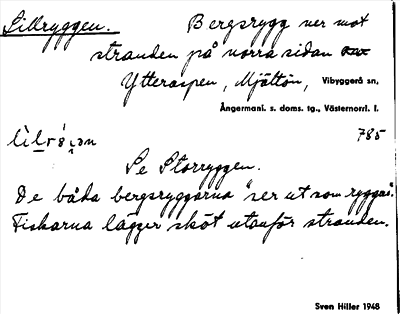 Lillryggen. Bergsrygg ner mot
stranden på norra sidan av
Ytteraspen, Mjältön, Vibyggerå sn,
Ångermanl. s. doms. tg., Västernorrl. l.
785
Se Storryggen.
De båda bergsryggarna "ser ut som ryggar".
Fiskarna lägger sköt utanför stranden.
Sven Hiller 1948